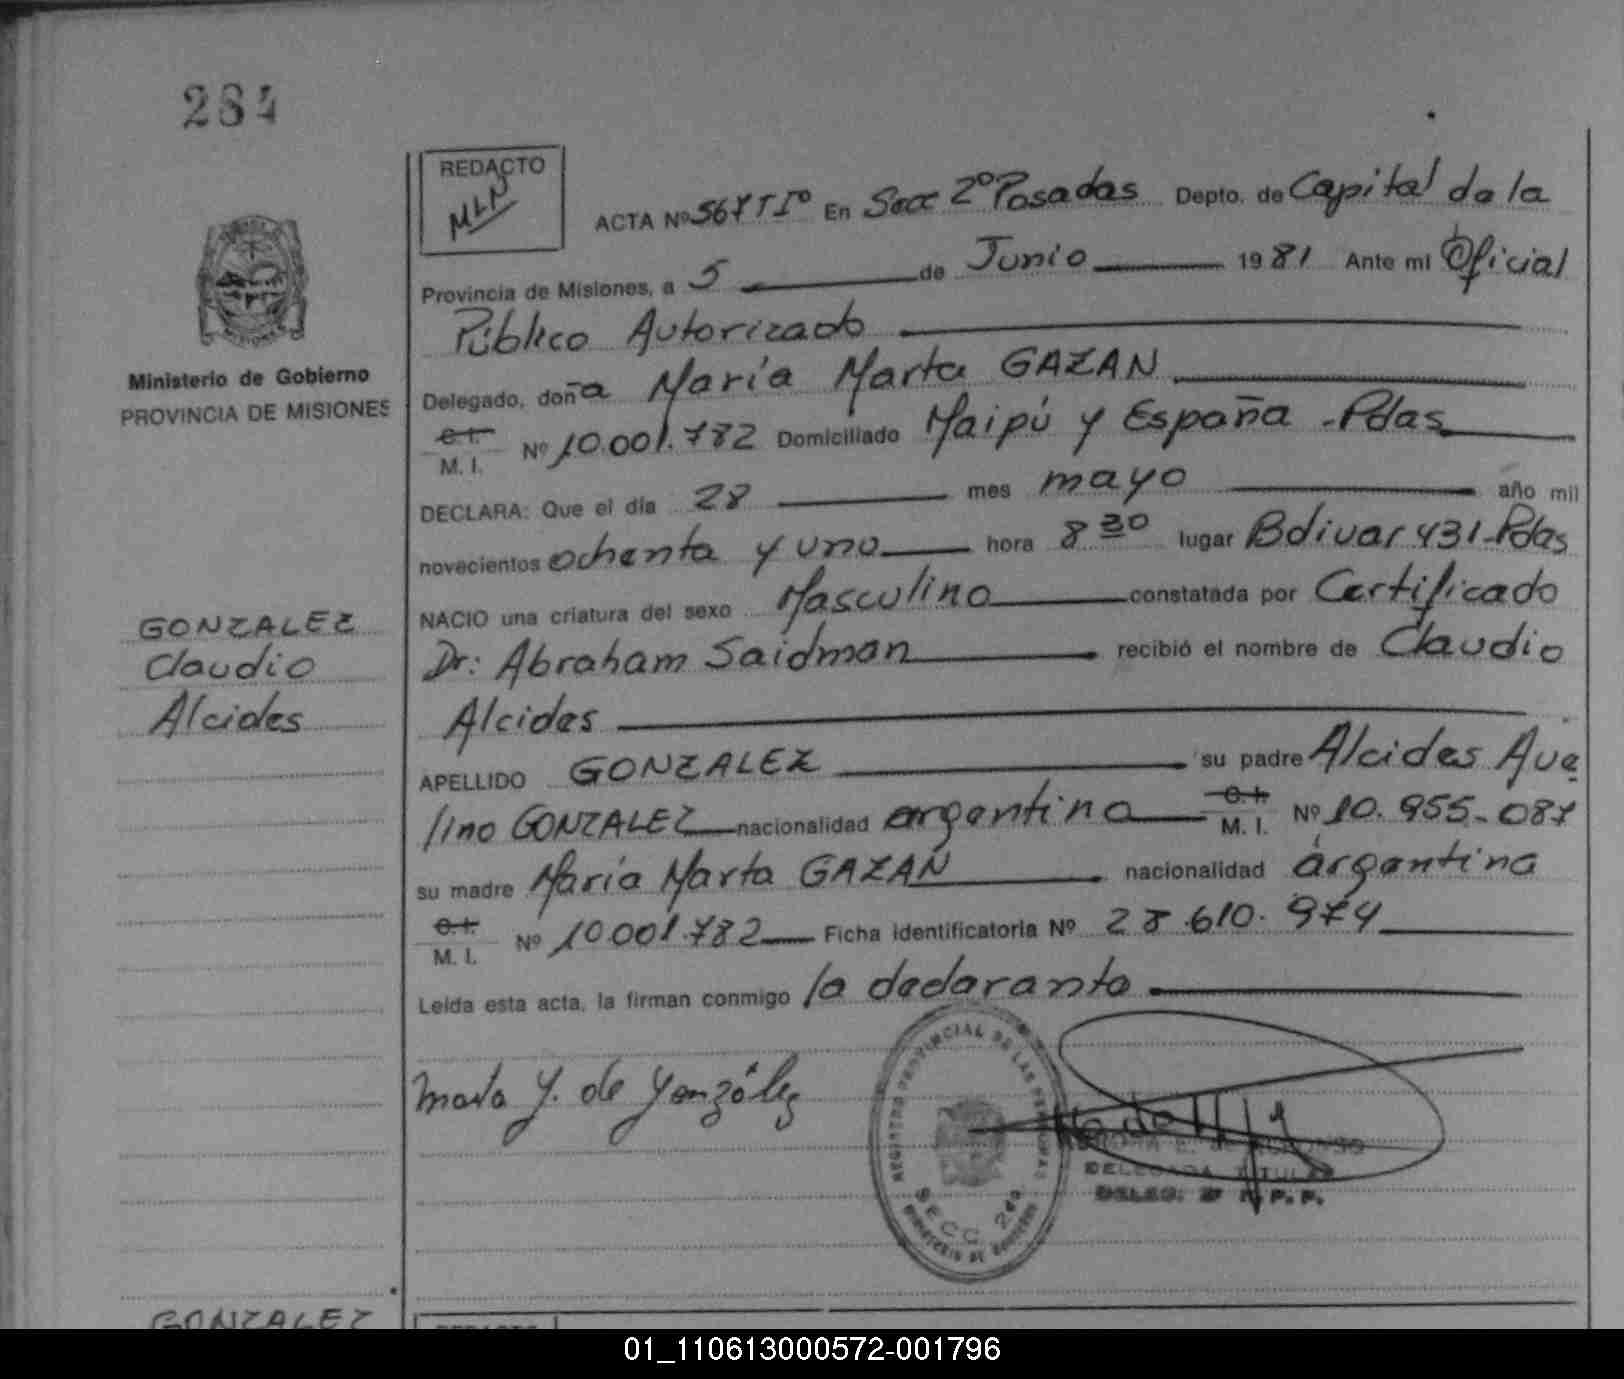 284
REDACTO
MLN
ACTA Nº 567 TIº En Secc 2º Posadas Depto. de Capital de la
Provincia de Misiones, a 5 de Junio 1981 Ante mi Oficial
Público Autorizado
Delegado, doña María Marta GAZAN
C.I.
M. I. Nº 10.001.782 Domiciliado Maipú y España - Pdas
DECLARA: Que el día 28 mes mayo año mil
novecientos ochenta y uno hora 8 30 lugar Bolivar 431-Pdas
NACIO una criatura del sexo Masculino constatada por Certificado
Dr: Abraham Saidman recibió el nombre de Claudio
Alcides
APELLIDO GONZALEZ su padre Alcides Ave
lino GONZALEZ nacionalidad argentino C.I. M. I. Nº 10.955.087
su madre María Marta GAZAN nacionalidad argentina
C.I.
M. I. Nº 10.001.782 Ficha identificatoria Nº 28.610.974
Leída esta acta, la firman conmigo la declarante
Ministerio de Gobierno
PROVINCIA DE MISIONES
GONZALEZ
Claudio
Alcides
Marta G. de González
REGISTRO PROVINCIAL DE LAS PERSONAS
SECC. 2da
MINISTERIO DE GOBIERNO
DELEGADA TITULAR
DELEG. 2ª R. P. P.
GONZALEZ
REDACTO
01_110613000572-001796